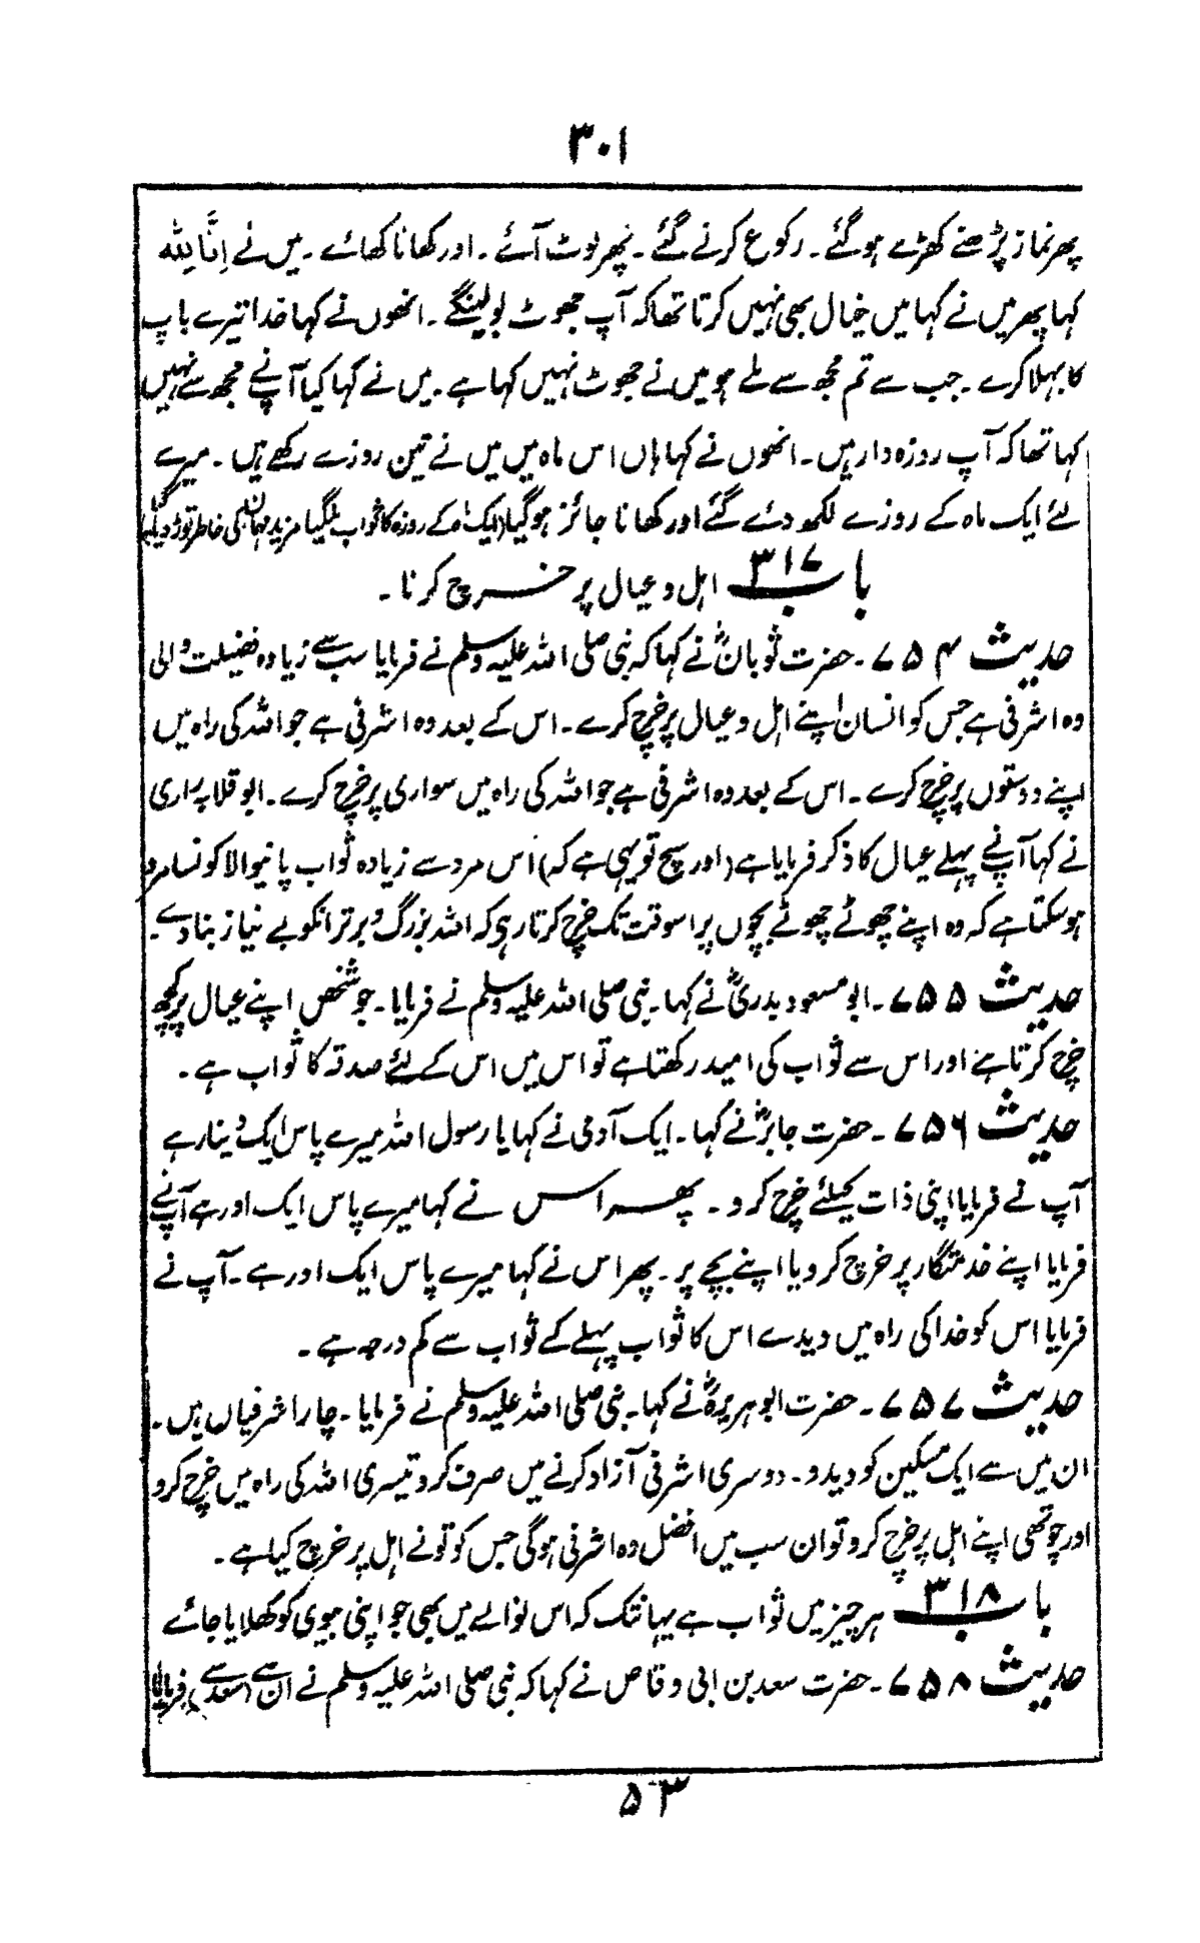 ۳۰۱
پھر نماز پڑھنے کھڑے ہوگئے۔ رکوع کرنے گئے۔ پھر لوٹ آئے۔ اور کھانا کھائے۔ میں نے اِنَّا لِلّٰہ
کہا پھر میں نے کہا میں خیال بھی نہیں کرتا تھا کہ آپ جھوٹ بولینگے۔ انھوں نے کہا خدا تیرے باپ
کا بھلا کرے۔ جب سے تم مجھ سے ملے ہو میں نے جھوٹ نہیں کہا ہے۔ میں نے کہا کیا آپنے مجھ سے نہیں
کہا تھا کہ آپ روزہ دار ہیں۔ انھوں نے کہا ہاں اس ماہ میں میں نے تین روزے رکھے ہیں۔ میرے
لئے ایک ماہ کے روزے لکھ دئے گئے اور کھانا جائز ہوگیا (ایک ماہ کے روزہ کا ثواب ملگیا مزید مہمان کی خاطر توڑ دیا گیا)
باب ۳۱۷ اہل و عیال پر خرچ کرنا۔
حدیث ۷۵۴۔ حضرت ثوبانؓ نے کہا کہ نبی صلی اللہ علیہ وسلم نے فرمایا سب سے زیادہ فضیلت والی
وہ اشرفی ہے جس کو انسان اپنے اہل و عیال پر خرچ کرے۔ اس کے بعد وہ اشرفی ہے جو اللہ کی راہ میں
اپنے دوستوں پر خرچ کرے۔ اس کے بعد وہ اشرفی ہے جو اللہ کی راہ میں سواری پر خرچ کرے۔ ابو قلابہ راوی
نے کہا آپنے پہلے عیال کا ذکر فرمایا ہے (اور سچ تو یہی ہے کہ) اُس مرد سے زیادہ ثواب پانیوالا کونسا مرد
ہوسکتا ہے کہ وہ اپنے چھوٹے چھوٹے بچوں پر اسوقت تک خرچ کرتا رہے کہ اللہ بزرگ و برتر انکو بے نیاز بنا دے۔
حدیث ۷۵۵۔ ابو مسعود بدریؓ نے کہا۔ نبی صلی اللہ علیہ وسلم نے فرمایا۔ جو شخص اپنے عیال پر کچھ
خرچ کرتا ہے اور اس سے ثواب کی امید رکھتا ہے تو اس میں اس کے لئے صدقہ کا ثواب ہے۔
حدیث ۷۵۶۔ حضرت جابرؓ نے کہا۔ ایک آدمی نے کہا یا رسول اللہ میرے پاس ایک دینار ہے
آپ نے فرمایا اپنی ذات کیلئے خرچ کرو۔ پھر اس نے کہا میرے پاس ایک اور ہے آپنے
فرمایا اپنے خدمتگار پر خرچ کرو یا اپنے بچے پر۔ پھر اس نے کہا میرے پاس ایک اور ہے۔ آپ نے
فرمایا اس کو خدا کی راہ میں دیدے اس کا ثواب پہلے کے ثواب سے کم درجہ ہے۔
حدیث ۷۵۷۔ حضرت ابوہریرہؓ نے کہا۔ نبی صلی اللہ علیہ وسلم نے فرمایا۔ چار اشرفیاں ہیں۔
ان میں سے ایک مسکین کو دیدو۔ دوسری اشرفی آزاد کرنے میں صرف کرو تیسری اللہ کی راہ میں خرچ کرو
اور چوتھی اپنے اہل پر خرچ کرو تو ان سب میں افضل وہ اشرفی ہوگی جس کو تو نے اہل پر خرچ کیا ہے۔
باب ۳۱۸ ہر چیز میں ثواب ہے یہانتک کہ اس نوالے میں بھی جو اپنی بیوی کو کھلایا جائے
حدیث ۷۵۸۔ حضرت سعد بن ابی وقاص نے کہا کہ نبی صلی اللہ علیہ وسلم نے ان سے (سعد سے) فرمایا
۵۳